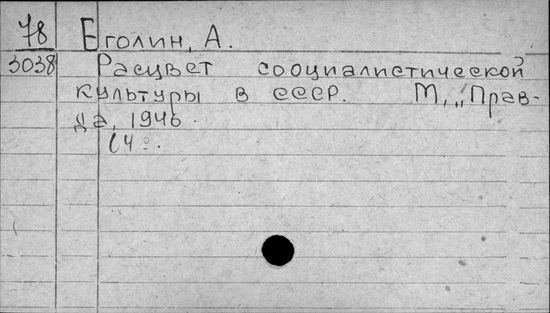 78 Еголин, А.
3038 Расцвет социалистической
культуры в СССР. М., „Прав-
да, 1946.
14